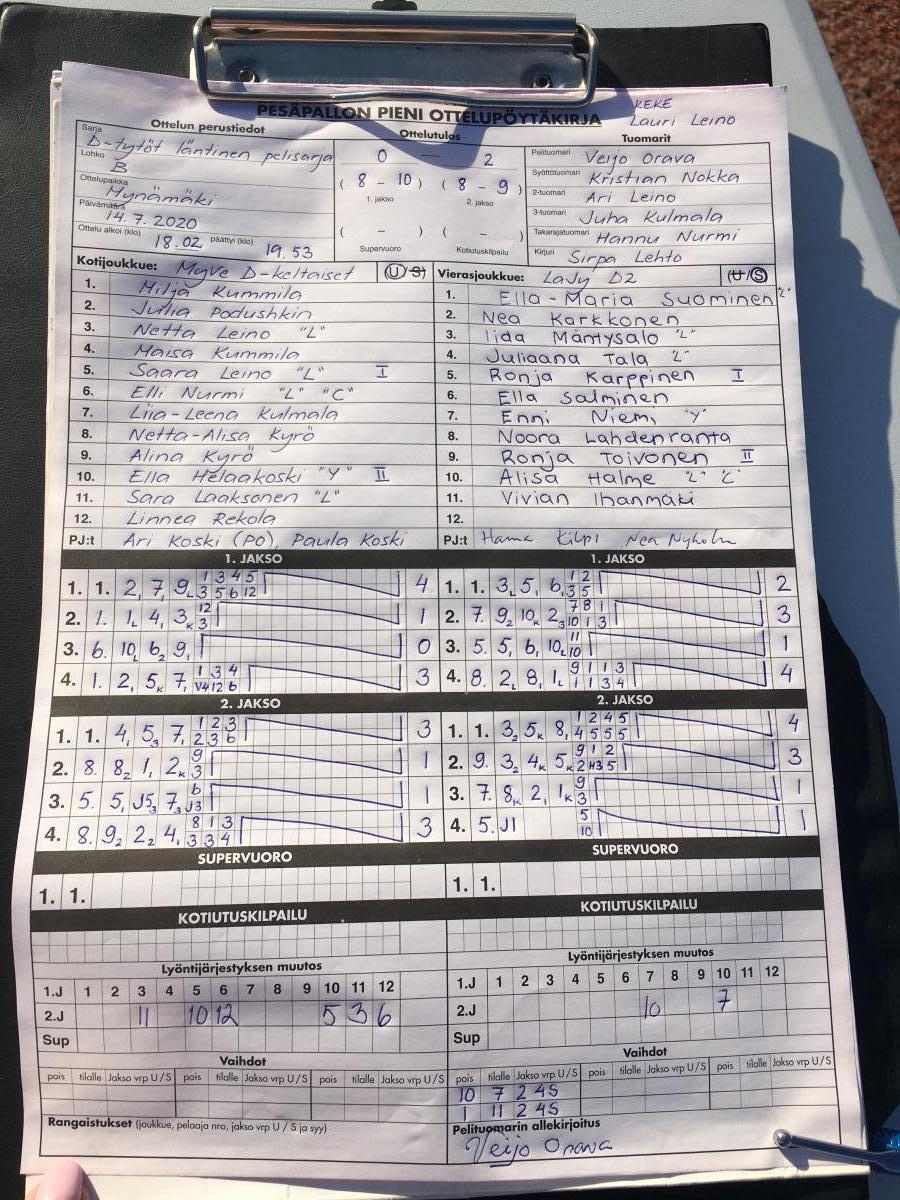 PESÄPALLON PIENI OTTELUPÖYTÄKIRJA
KEKE
Lauri Leino
Ottelun perustiedot
Sarja
D-tytöt läntinen pelisarja
Lohko
B
Ottelupaikka
Mynämäki
Päivämäärä
14.7.2020
Ottelu alkoi (klo) 18.02 päättyi (klo) 19.53
Ottelutulos
0 — 2
( 8 - 10 ) ( 8 - 9 )
1. jakso 2. jakso
( - ) ( - )
Supervuoro Kotiutuskilpailu
Tuomarit
Pelituomari Veijo Orava
Syöttötuomari Kristian Nokka
2-tuomari Ari Leino
3-tuomari Juha Kulmala
Takarajatuomari Hannu Nurmi
Kirjuri Sirpa Lehto
Kotijoukkue: MyVe D-keltaiset U/S
1. Milja Kummila
2. Julia Podushkin
3. Netta Leino "L"
4. Maisa Kummila
5. Saara Leino "L" I
6. Elli Nurmi "L" "C"
7. Liia-Leena Kulmala
8. Netta-Alisa Kyrö
9. Alina Kyrö
10. Ella Helaakoski "Y" II
11. Sara Laaksonen "L"
12. Linnea Rekola
PJ:t Ari Koski (PO), Paula Koski
Vierasjoukkue: LaJy D2 U/S
1. Ella-Maria Suominen "L"
2. Nea Karkkonen
3. Iida Mäntysalo "L"
4. Juliaana Tala "L"
5. Ronja Karppinen I
6. Ella Salminen
7. Enni Niemi "Y"
8. Noora Lahdenranta
9. Ronja Toivonen II
10. Alisa Halme "L" "C"
11. Vivian Ihanmäki
12.
PJ:t Hanna Kilpi Nea Nyholm
1. JAKSO
1. 1. 2, 7, 9L 1 3 4 5 4
3 5 6 12
2. 1. 1L 4, 3K 12 1
3
3. 6. 10L 62 9, 0
4. 1. 2, 5K 7, 1 3 4 3
V4 12 6
1. JAKSO
1. 1. 3L 5, 6, 1 2 2
3 5
2. 7. 9, 10K 23 7 8 1 3
10 1 3
3. 5. 5, 6, 10L 11 1
10
4. 8. 2L 8, 1L 9 1 1 3 4
1 1 3 4
2. JAKSO
1. 1. 4, 53 7, 1 2 3 3
2 3 6
2. 8. 82 1, 2K 9 1
3
3. 5. 5, J53 73 6 1
J3
4. 8. 92 22 4, 8 1 3 3
3 3 4
2. JAKSO
1. 1. 32 5K 8, 1 2 4 5 4
4 5 5 5
2. 9. 32 4K 5K 9 1 2 3
2 H3 5
3. 7. 8K 2, 1K 9 1
3
4. 5. J1 5 1
10
SUPERVUORO
1. 1.
SUPERVUORO
1. 1.
KOTIUTUSKILPAILU
KOTIUTUSKILPAILU
Lyöntijärjestyksen muutos
1.J 1 2 3 4 5 6 7 8 9 10 11 12
2.J 11 10 12 5 3 6
Sup
Lyöntijärjestyksen muutos
1.J 1 2 3 4 5 6 7 8 9 10 11 12
2.J 10 7
Sup
Vaihdot
pois tilalle Jakso vrp U/S pois tilalle Jakso vrp U/S pois tilalle Jakso vrp U/S
Vaihdot
pois tilalle Jakso vrp U/S pois tilalle Jakso vrp U/S pois tilalle Jakso vrp U/S
10 7 2 4S
1 11 2 4S
Rangaistukset (joukkue, pelaaja nro, jakso vrp U / S ja syy)
Pelituomarin allekirjoitus
Veijo Orava